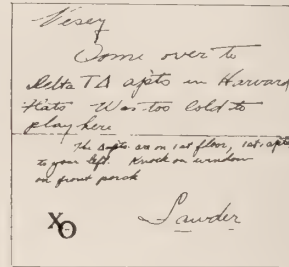 Vesey
Come over to
Delta TΔ apts in Harvard
Flats Was too cold to
play here
The apts. are on 1st floor, 1st. apts
to your left. Knock on window
on front porch
XO Sawder